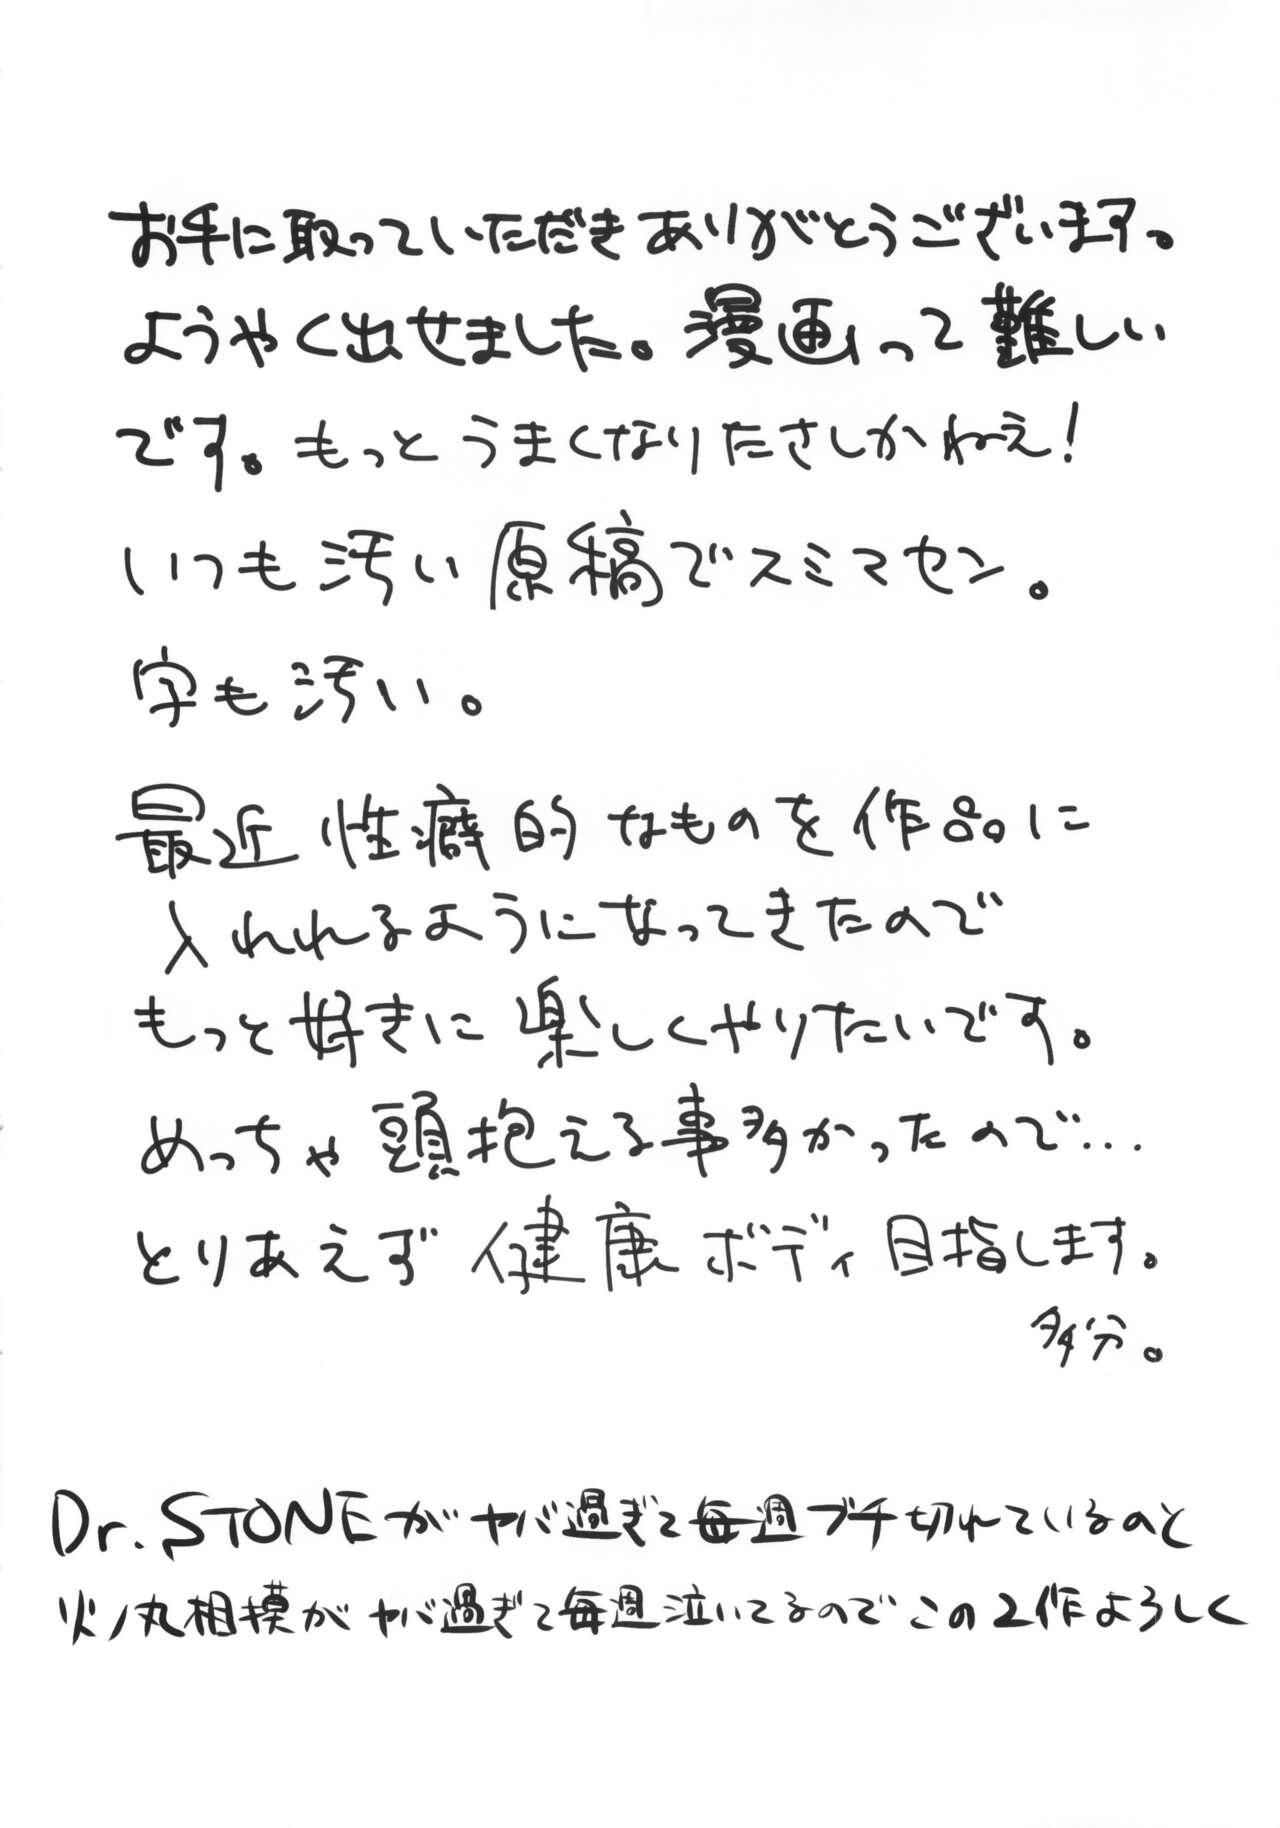 お手に取っていただきありがとうございます。
ようやく出せました。漫画って難しい
です。もっとうまくなりたさしかねえ!
いつも汚い原稿でスミマセン。
字も汚い。
最近性癖的なものを作品に
入れれるようになってきたので
もっと好きに楽しくやりたいです。
めっちゃ頭抱える事多かったので…
とりあえず健康ボディ目指します。
多分。
Dr.STONEがヤバ過ぎて毎週ブチ切れているのと
火ノ丸相模がヤバ過ぎて毎週泣いてるのでこの2作よろしく